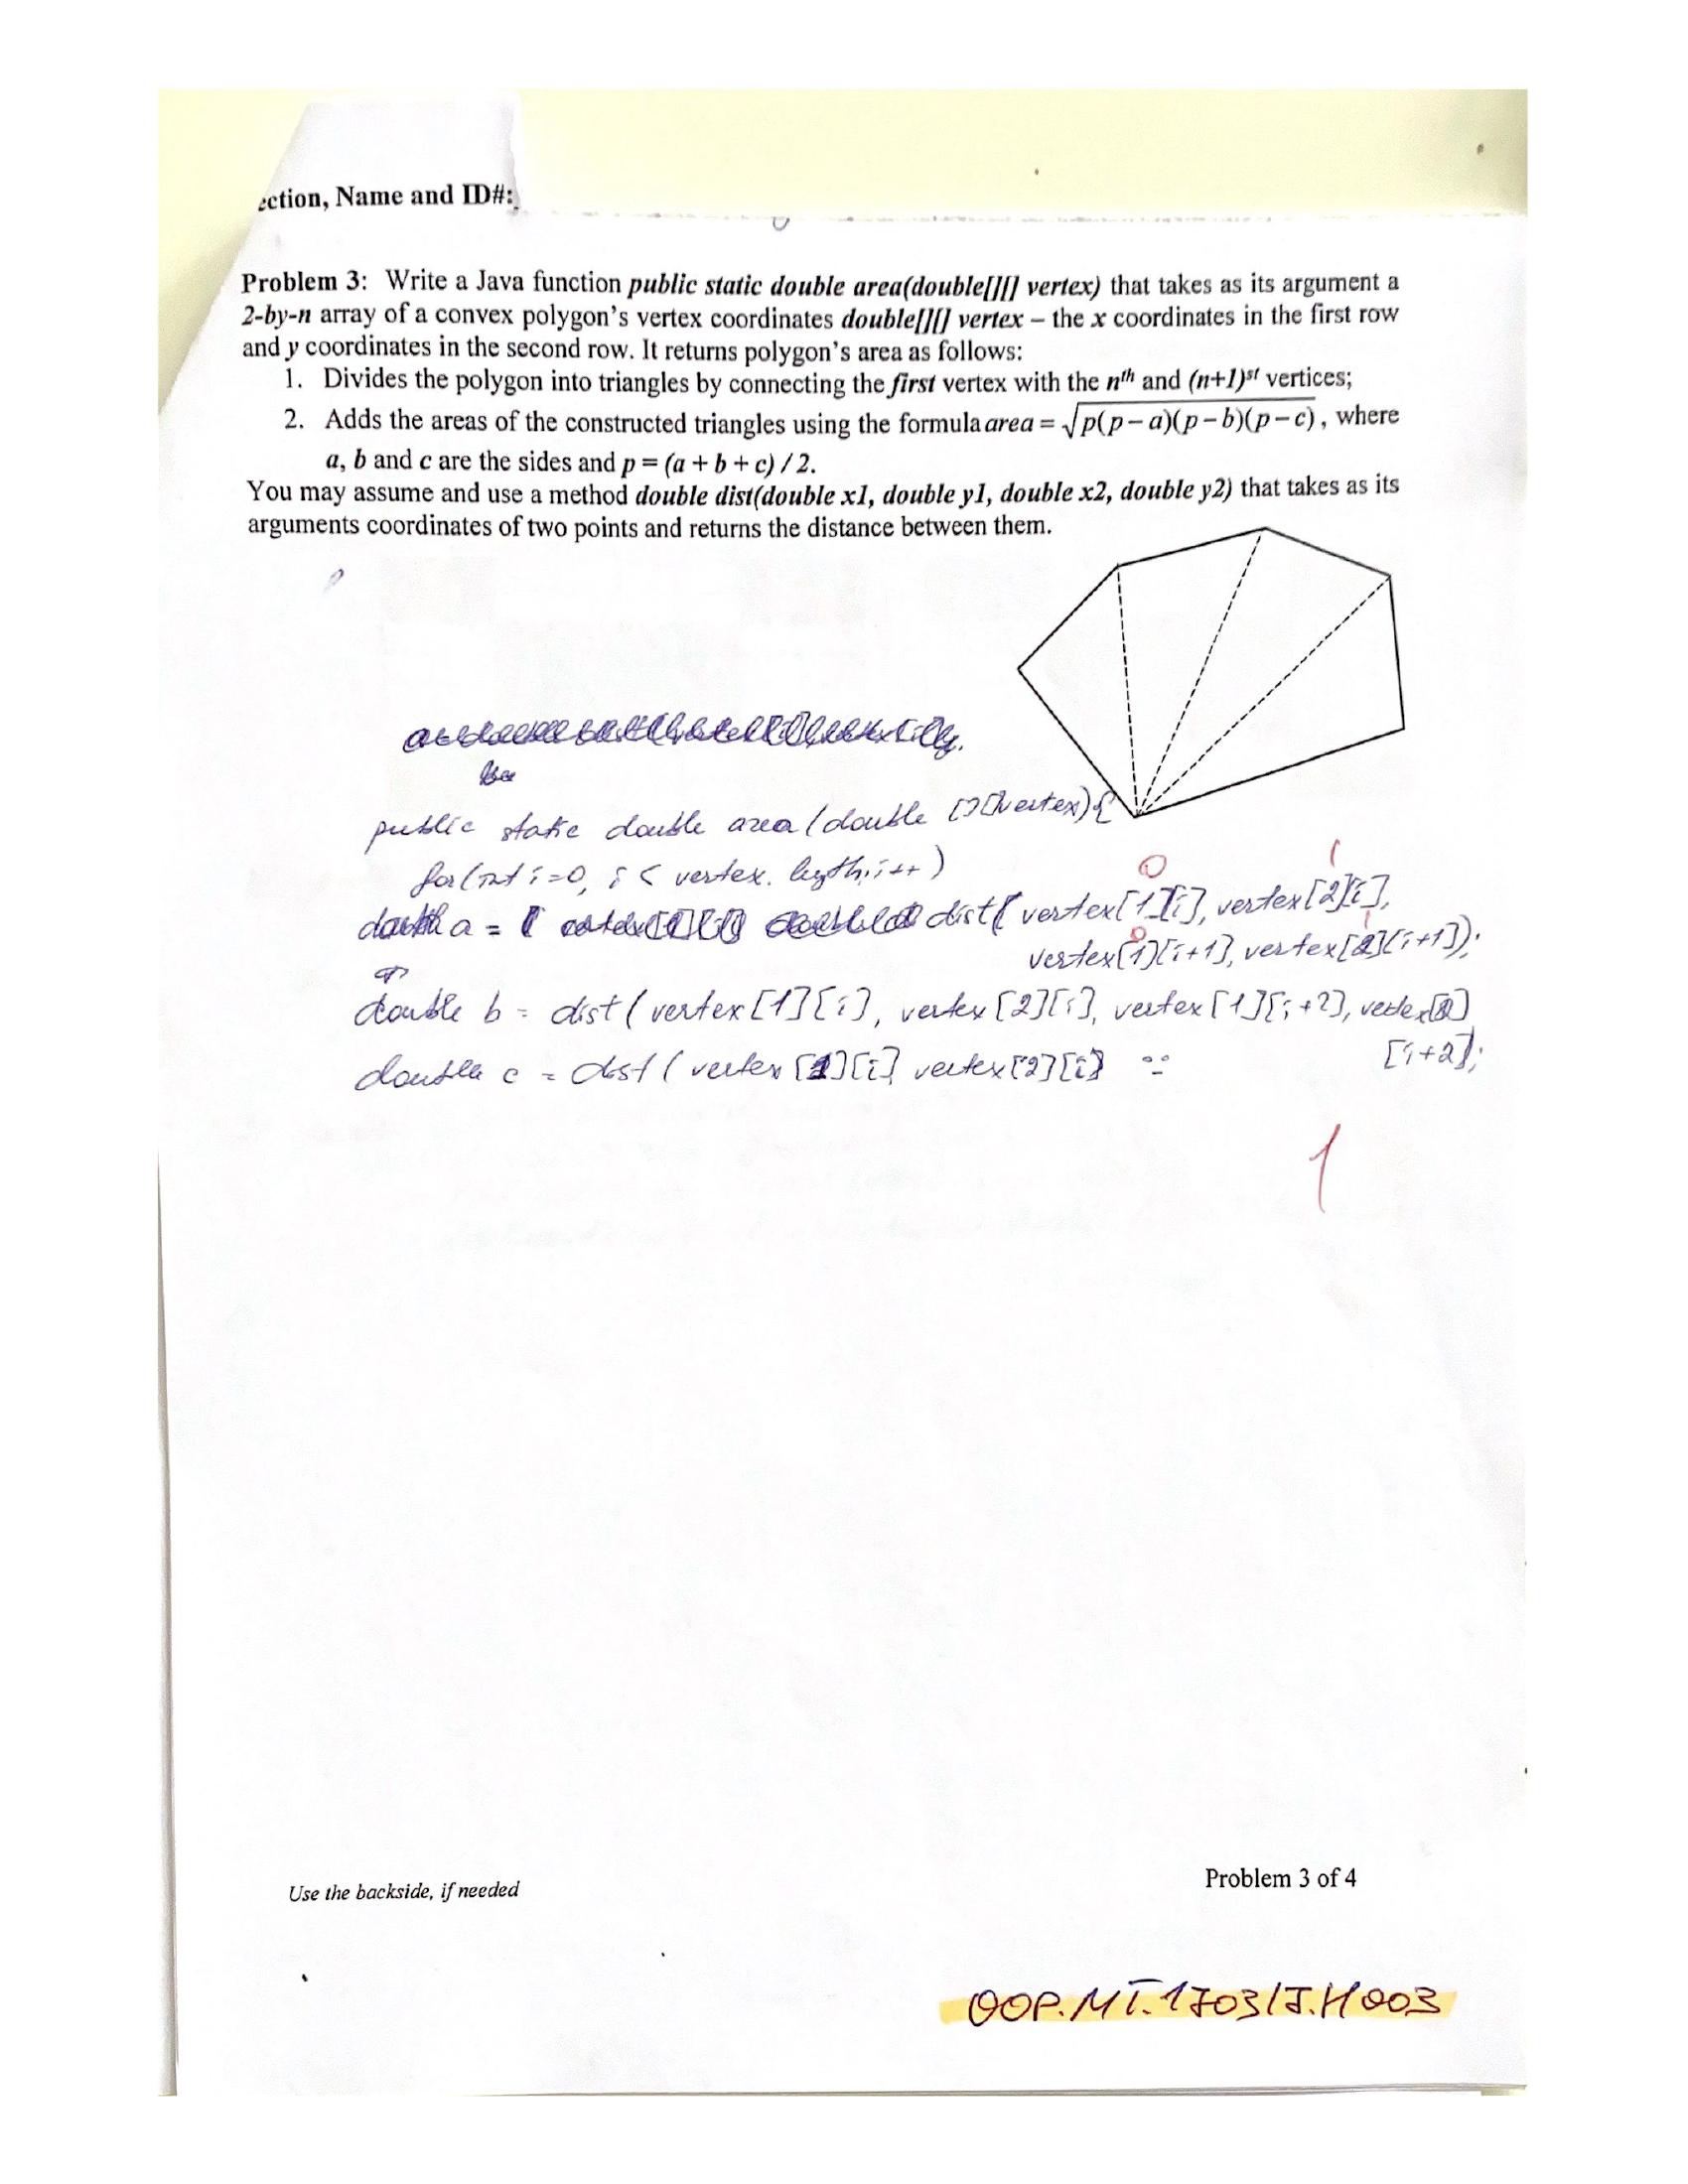 ection, Name and ID#:
Problem 3: Write a Java function public static double area(double[][] vertex) that takes as its argument a
2-by-n array of a convex polygon's vertex coordinates double[][] vertex – the x coordinates in the first row
and y coordinates in the second row. It returns polygon's area as follows:
1. Divides the polygon into triangles by connecting the first vertex with the nth and (n+1)st vertices;
2. Adds the areas of the constructed triangles using the formula area = √p(p−a)(p−b)(p−c), where
a, b and c are the sides and p = (a + b + c) / 2.
You may assume and use a method double dist(double x1, double y1, double x2, double y2) that takes as its
arguments coordinates of two points and returns the distance between them.
public static double area (double [][]vertex){
for(int i=0, i < vertex. length, i++)
0 1
double a = dist( vertex[1][i], vertex[2][i],
0 1
vertex[1][i+1], vertex[2][i+1]);
double b = dist( vertex[1][i], vertex[2][i], vertex[1][i+2], vertex[2]
[i+2];
double c = dist( vertex[1][i] vertex[2][i]
1
Use the backside, if needed
Problem 3 of 4
OOP.MT.170317.H003